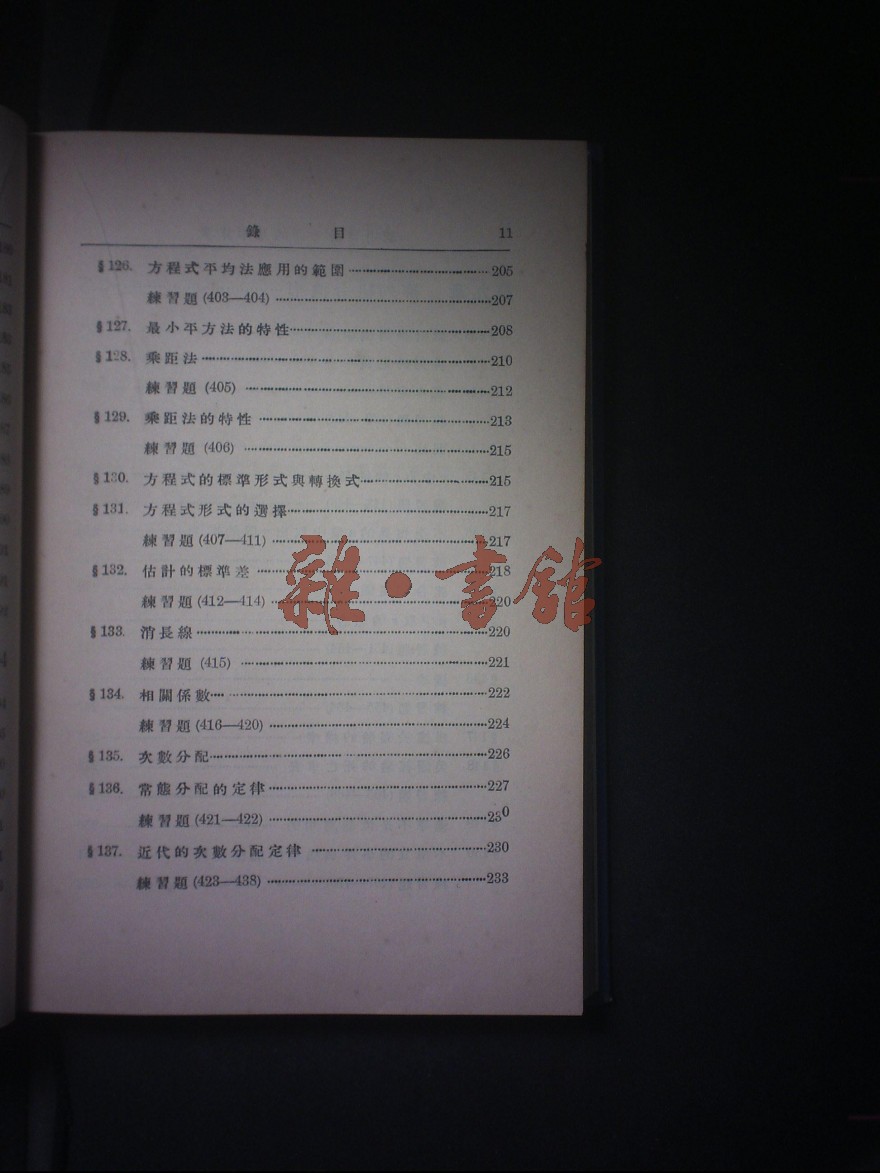 錄 目 11
§126. 方程式平均法應用的範圍 205
練習題(403—404) 207
§127. 最小平方法的特性 208
§128. 乘距法 210
練習題(405) 212
§129. 乘距法的特性 213
練習題(406) 215
§130. 方程式的標準形式與轉換式 215
§131. 方程式形式的選擇 217
練習題(407—411) 217
§132. 估計的標準差 218
練習題(412—414) 220
§133. 消長線 220
練習題(415) 221
§134. 相關係數 222
練習題(416—420) 224
§135. 次數分配 226
§136. 常態分配的定律 227
練習題(421—422) 230
§137. 近代的次數分配定律 230
練習題(423—438) 233
雜·書館